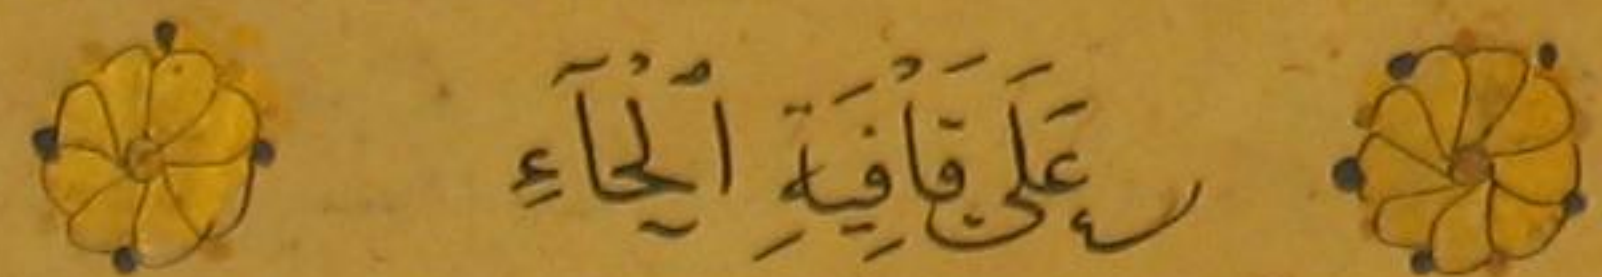 عَلَى قَافِيَةِ ٱلْحَآءِ